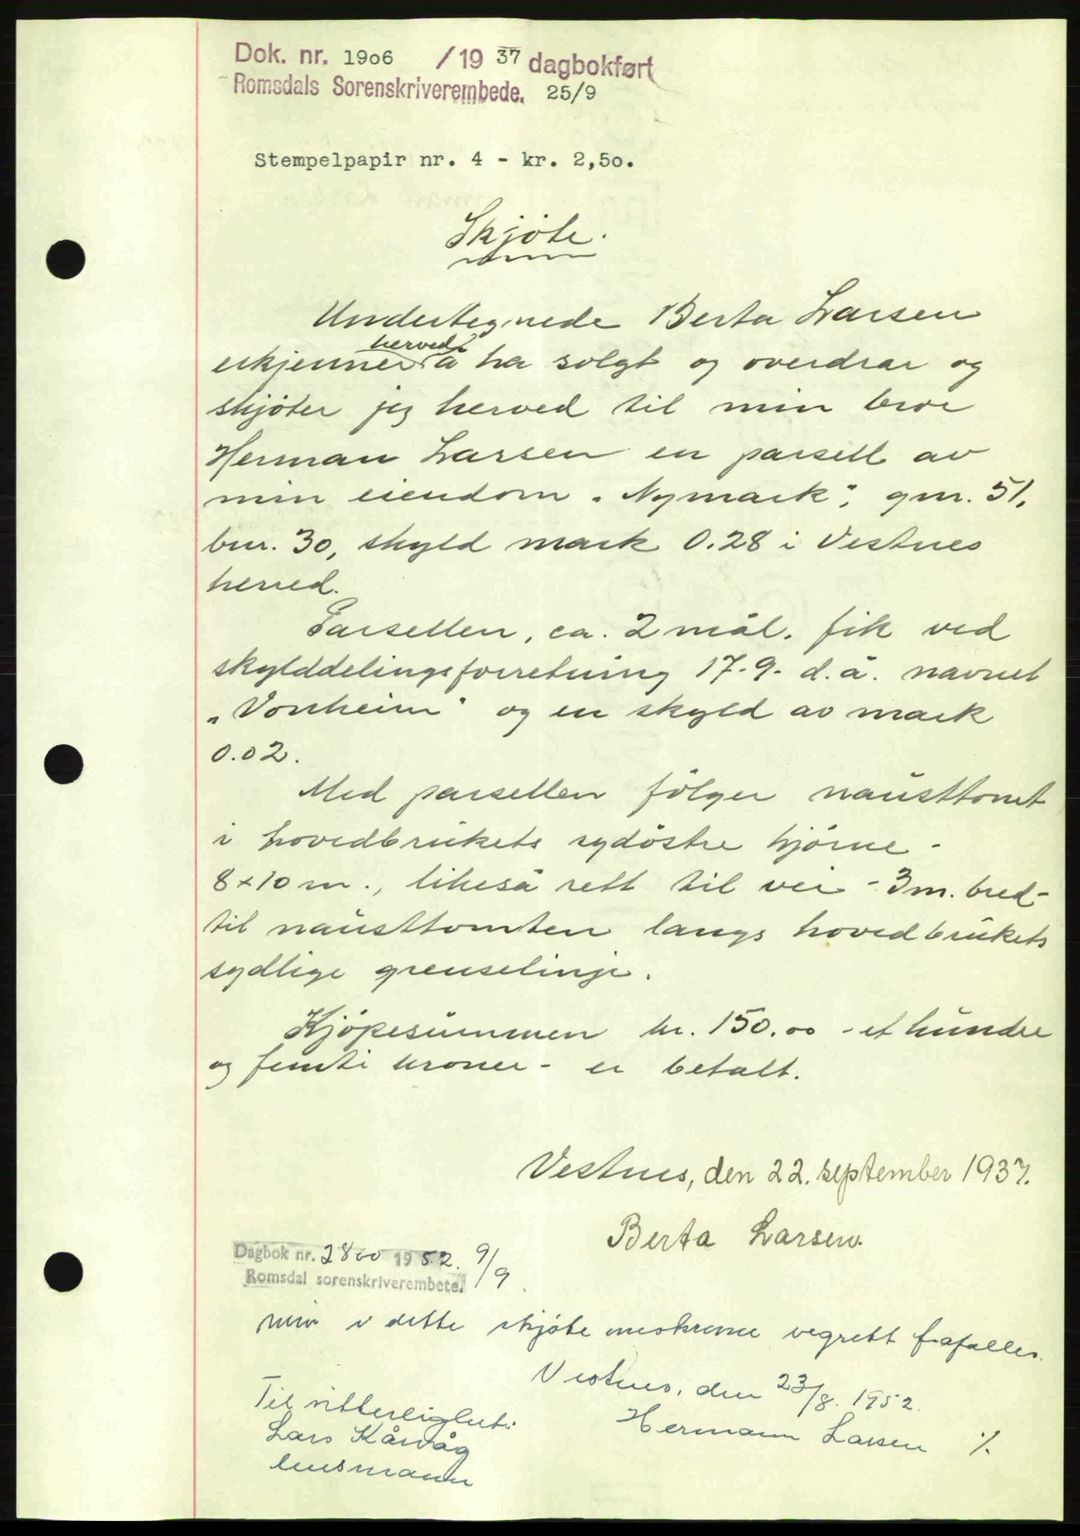 Dok. nr. 1906 /19 37 dagbokført
Romsdals Sorenskriverembede. 25/9
Stempelpapir nr. 4 - kr. 2,50.
Skjöte.
Undertegnede Berta Larsen
herved
erkjenner å ha solgt og overdrar og
skjöter jeg herved til min bror
Herman Larsen en parsell av
min eiendom „Nymark", gnr. 51,
bnr. 30, skyld mark 0.28 i Vestnes
herred.
Parsellen, ca. 2 mål. fik ved
skylddelingsforretning 17.9. d.å. navnet
„Vonheim" og en skyld av mark
0.02.
Med parsellen fölger nausttomt
i hovedbrukets sydöstre hjörne -
8x10 m., likeså rett til vei - 3 m. bred -
til nausttomten langs hovedbrukets
sydlige grenselinje.
Kjöpesummen kr. 150.00 - et hundre
og femti kroner - er betalt.
Vestnes, den 22. september 1937.
Berta Larsen.
Dagbok nr. 2800 1952. 9/9
Romsdal sorenskriverembete.
min i dette skjöte omskrevne vegrett frafalles.
Vestnes, den 23/8. 1952.
Til vitterlighet:
Hermann Larsen %
Lars Kårvåg
lensmann